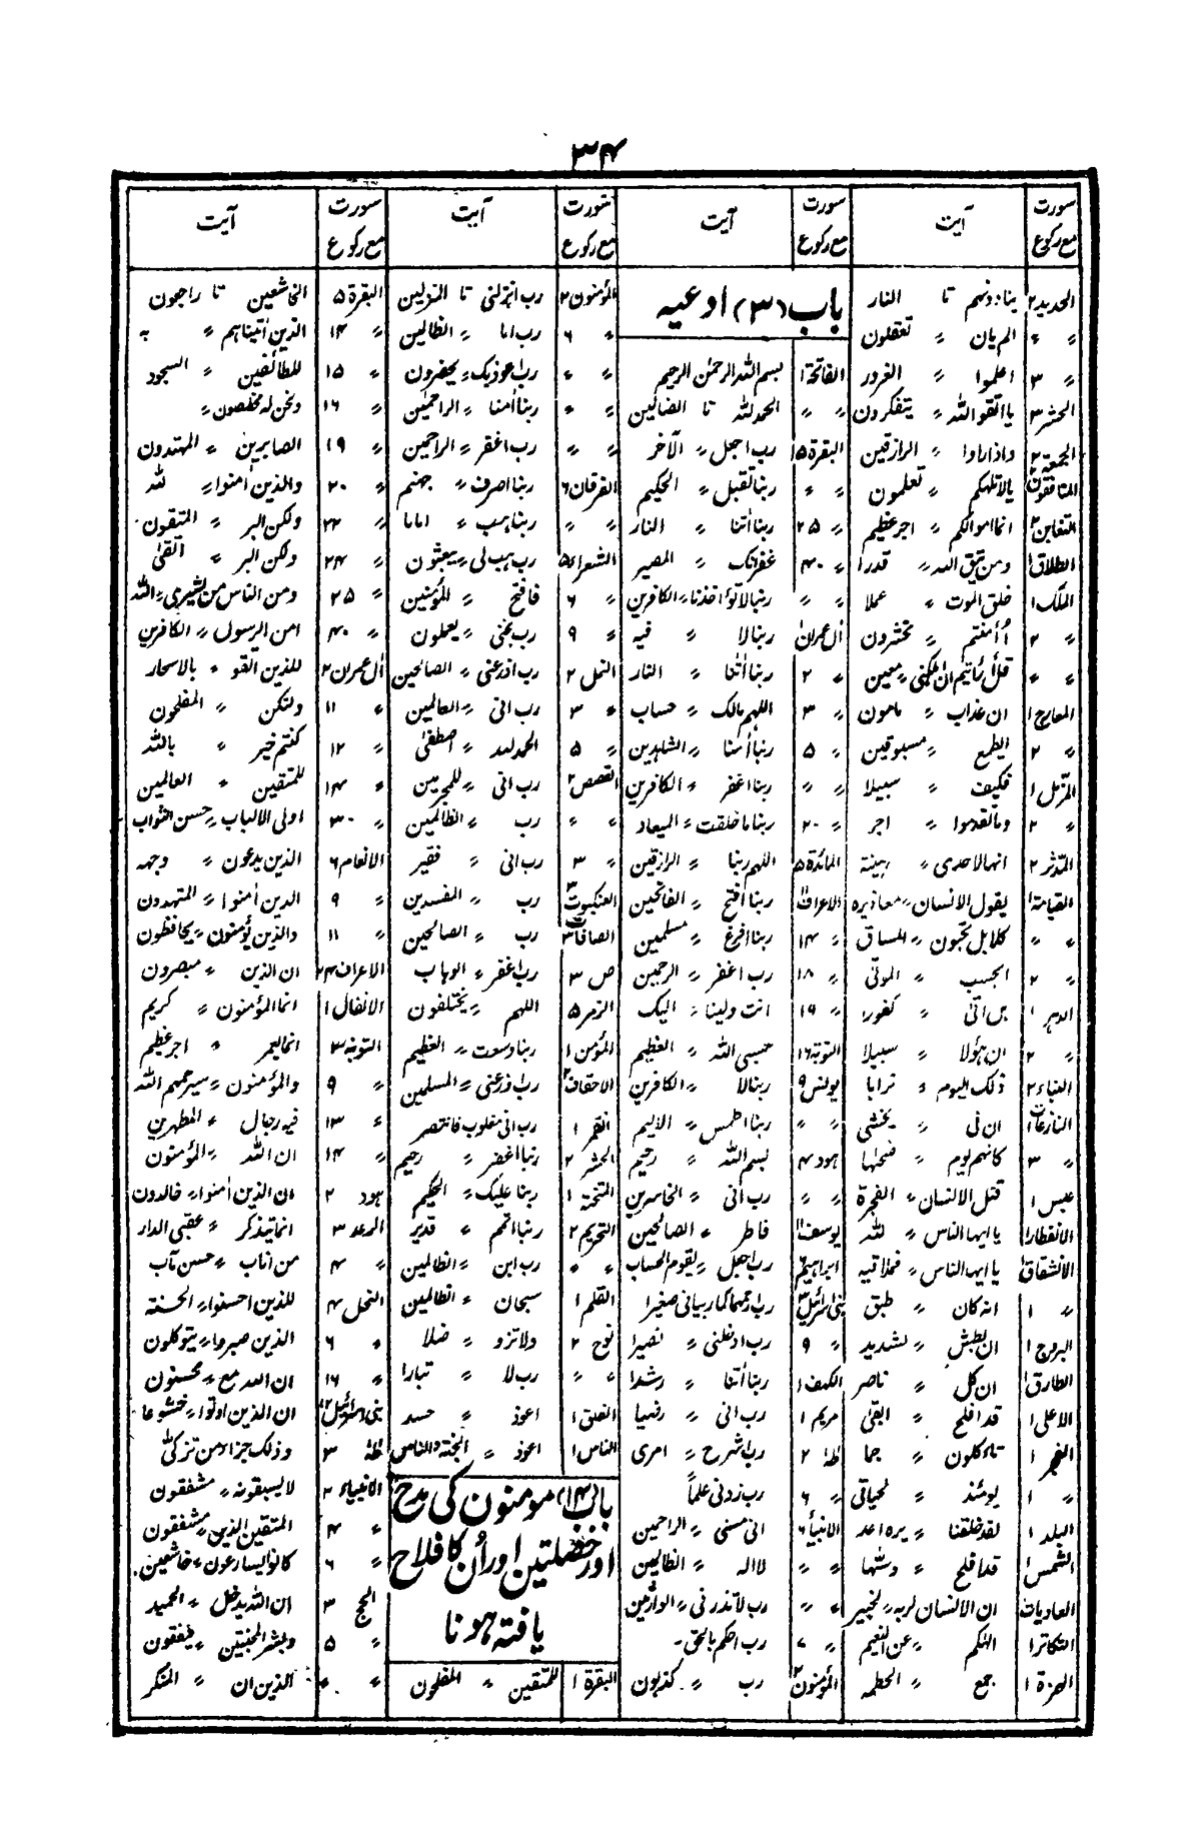 ۳۴
سورت مع رکوع | آیت | سورت مع رکوع | آیت | سورت مع رکوع | آیت | سورت مع رکوع | آیت
الحدید ۲ ینادونہم تا النار
〃 〃 الم یان 〃 تعقلون
〃 ۳ اعلموا 〃 الغرور
الحشر ۳ یا اتقو اللہ 〃 یتفکرون
الجمعۃ ۲ واذا راوا 〃 الرازقین
المنافقون ۲ یا لا تلہکم 〃 تعلمون
التغابن ۲ انما اموالکم 〃 اجر عظیم
الطلاق ۱ ومن یتق اللہ 〃 قدرا
الملک ۱ خلق الموت 〃 عملا
〃 ۲ أأمنتم 〃 تحشرون
〃 〃 قل أرئیتم ان اہلکنی 〃 معین
المعارج ۱ ان عذاب 〃 مامون
〃 ۲ ایطمع 〃 مسبوقین
المزمل ۱ فکیف 〃 سبیلا
〃 ۲ وما تقدموا 〃 اجر
المدثر ۲ انہا لاحدی 〃 رہینۃ
القیامۃ ۱ یقول الانسان 〃 معاذیرہ
〃 〃 کلا بل تحبون 〃 المساق
〃 ۲ ایحسب 〃 الموتٰی
الدہر ۱ ہل اتی 〃 کفورا
〃 ۲ ان ہؤلا 〃 سبیلا
النباء ۲ ذلک الیوم 〃 ترابا
النازعات ۱ ان فی 〃 یخشٰی
〃 ۳ کانہم یوم 〃 ضحٰہا
عبس ۱ قتل الانسان 〃 الفجرۃ
الانفطار ۱ یا ایہا الناس 〃 للہ
الانشقاق ۱ یا ایہا الناس 〃 فملاقیہ
〃 ۱ انہ کان 〃 طبق
البروج ۱ ان بطش 〃 لشدید
الطارق ۱ ان کل 〃 ناصر
الاعلٰی ۱ قد افلح 〃 ابقٰی
الفجر ۱ تاء کلون 〃 جما
〃 ۱ یومئذ 〃 لحیاتی
البلد ۱ لقد خلقنا 〃 یرہ احد
الشمس ۱ قد افلح 〃 دسّٰہا
العادیات ان الانسان لربہ 〃 لخبیر
التکاثر ۱ الہکم 〃 عن النعیم
الہمزۃ ۱ جمع 〃 الحطمہ
باب (۳) ادعیہ
الفاتحۃ ۱ بسم اللہ الرحمٰن الرحیم
〃 〃 الحمد للہ تا الضالین
البقرۃ ۱۵ رب اجعل 〃 الآخر
〃 〃 ربنا تقبل 〃 الحکیم
〃 ۲۵ ربنا اٰتنا 〃 النار
〃 ۴۰ غفرانک 〃 المصیر
〃 〃 ربنا لا تؤاخذنا 〃 الکافرین
اٰل عمران ۱ ربنا لا 〃 فیہ
〃 ۲ ربنا اٰتنا 〃 النار
〃 ۳ اللہم مالک 〃 حساب
〃 ۵ ربنا اٰمنا 〃 الشاہدین
〃 〃 ربنا اغفر 〃 الکافرین
〃 ۲۰ ربنا ما خلقت 〃 المیعاد
المائدۃ ۱۵ اللہم ربنا 〃 الرازقین
الاعراف ربنا افتح 〃 الفاتحین
〃 ۱۴ ربنا افرغ 〃 مسلمین
〃 ۱۸ رب اغفر 〃 الرحمین
〃 ۱۹ انت ولینا 〃 الیک
التوبۃ ۱۶ حسبی اللہ 〃 العظیم
یونس ۹ ربنا لا 〃 الکافرین
〃 〃 ربنا اطمس 〃 الالیم
ہود ۴ بسم اللہ 〃 رحیم
〃 〃 رب انی 〃 الخاسرین
یوسف ۱۱ فاطر 〃 الصالحین
ابراہیم رب اجعل 〃 یقوم الحساب
بنی اسرائیل ۳ رب ارحمہما کما ربیانی صغیرا
〃 ۹ رب ادخلنی 〃 نصیرا
الکہف ۱ ربنا اٰتنا 〃 رشدا
مریم ۱ رب انی 〃 رضیا
طٰہٰ ۲ رب اشرح 〃 امری
〃 ۶ رب زدنی علماً
الانبیاء ۶ انی مسنی 〃 الراحمین
〃 〃 لا الہ 〃 الظالمین
〃 〃 رب لا تذرنی 〃 الوارثین
〃 ۷ رب احکم بالحق۔
المؤمنون ۲ رب 〃 کذبون
المؤمنون ۲ رب انزلنی تا المنزلین
〃 ۶ رب اما 〃 الظالمین
〃 〃 رب اعوذبک 〃 یحضرون
〃 〃 ربنا اٰمنا 〃 الراحمین
〃 〃 رب اغفر 〃 الراحمین
الفرقان ۶ ربنا اصرف 〃 جہنم
〃 〃 ربنا ہب 〃 اماما
الشعراء ۵ رب ہب لی 〃 یبعثون
〃 ۶ فافتح 〃 المؤمنین
〃 ۹ رب نجنی 〃 یعملون
النمل ۲ رب اوزعنی 〃 الصالحین
〃 ۳ رب انی 〃 العالمین
〃 ۵ الحمد للہ 〃 اصطفٰی
القصص ۲ رب انی 〃 للمجرمین
〃 〃 رب 〃 الظالمین
〃 ۳ رب انی 〃 فقیر
العنکبوت ۳ رب 〃 المفسدین
الصافات ۳ رب 〃 الصالحین
ص ۳ رب اغفر 〃 الوہاب
الزمر ۵ اللہم 〃 یختلفون
المؤمن ۱ ربنا وسعت 〃 العظیم
الاحقاف ۲ رب اوزعنی 〃 المسلمین
القمر ۱ رب انی مغلوب فانتصر
الحشر ۲ ربنا اغفر 〃 رحیم
الممتحنۃ ۱ ربنا علیک 〃 الحکیم
التحریم ۲ ربنا اتمم 〃 قدیر
〃 〃 رب ابن 〃 الظالمین
القلم ۱ سبحان 〃 الظالمین
نوح ۲ ولا تزد 〃 ضلا
〃 〃 رب لا 〃 تبارا
الفلق ۱ اعوذ 〃 حسد
الناس ۱ اعوذ 〃 الجنۃ والناس
باب (۴) مومنون کی مدح
اور خصلتین اور اُن کا فلاح
یافتہ ہونا
البقرۃ ۱ للمتقین 〃 المفلحون
البقرۃ ۵ الخاشعین تا راجعون
〃 ۱۴ الذین اٰتیناہم 〃 بہ
〃 ۱۵ للطائفین 〃 السجود
〃 ۱۶ ونحن لہ مخلصون 〃
〃 ۱۹ الصابرین 〃 المہتدون
〃 ۲۰ والذین اٰمنوا 〃 للہ
〃 ۲۲ ولکن البر 〃 المتقون۔
〃 ۲۴ ولکن البر 〃 اتقٰی
〃 ۲۵ ومن الناس من یشری 〃 اللہ
〃 ۴۰ امن الرسول 〃 الکافرین
اٰل عمران ۲ للذین اتقو 〃 بالاسحار
〃 ۱۱ ولتکن 〃 المفلحون
〃 ۱۲ کنتم خیر 〃 باللہ
〃 ۱۴ للمتقین 〃 العالمین
〃 ۳۰ اولی الالباب 〃 حسن الثواب
الانعام ۶ الذین یدعون 〃 وجہہ
〃 ۹ الذین اٰمنوا 〃 المہتدون
〃 ۱۱ والذین یؤمنون 〃 یحافظون
الاعراف ۲۴ ان الذین 〃 مبصرون
الانفال ۱ انما المؤمنون 〃 کریم
التوبۃ ۳ انما یعمر 〃 اجر عظیم
〃 ۹ والمؤمنون 〃 سیرحمہم اللہ
〃 ۱۳ فیہ رجال 〃 المطہرین
〃 ۱۴ ان اللہ 〃 المؤمنون
ہود ۲ ان الذین اٰمنوا 〃 خالدون
الرعد ۳ انما یتذکر 〃 عقبی الدار
〃 ۴ من اناب 〃 حسن مآب
النحل ۴ للذین احسنوا 〃 الحسنۃ
〃 ۶ الذین صبروا 〃 یتوکلون
〃 ۱۶ ان اللہ مع 〃 محسنون
بنی اسرائیل ۱۲ ان الذین اوتوا 〃 خشوعا
طٰہٰ ۳ وذلک جزاء من تزکّٰی
الانبیاء ۲ لا یسبقونہ 〃 مشفقون
〃 ۴ المتقین الذین 〃 مشفقون
〃 ۶ کانوا یسارعون 〃 خاشعین۔
الحج ۳ ان اللہ یدخل 〃 الحمید
〃 ۵ وبشر المخبتین 〃 ینفقون
〃 〃 الذین ان 〃 المنکر